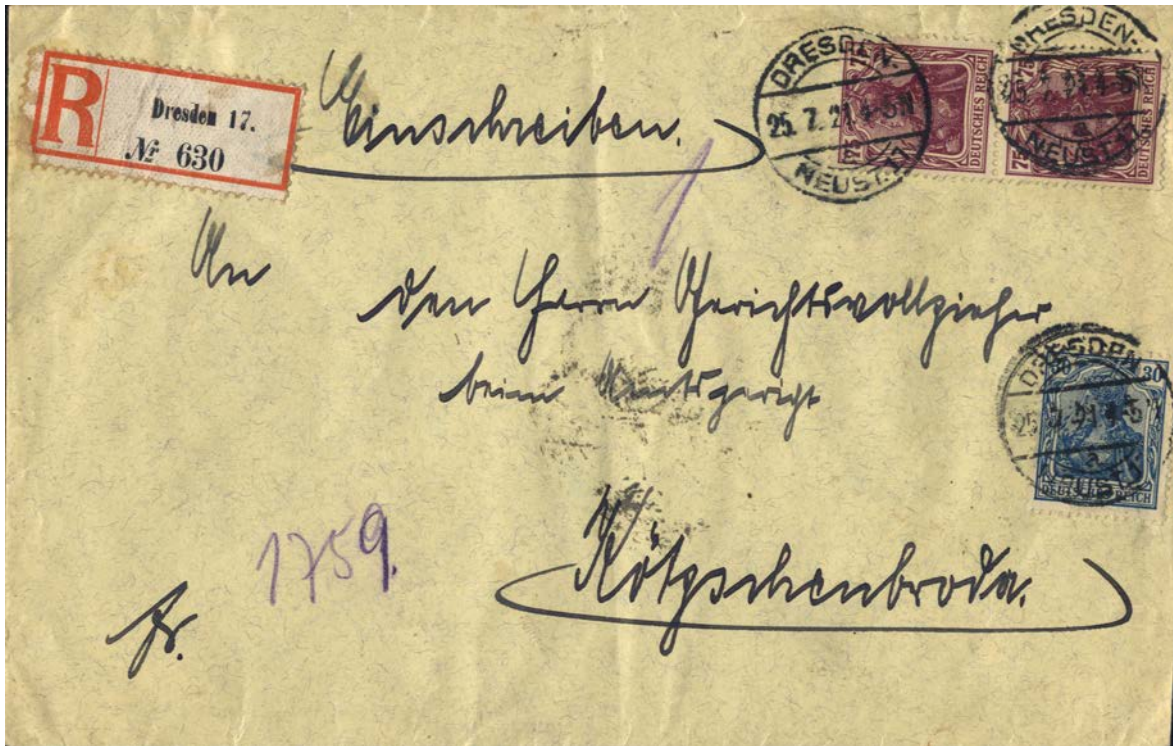 R
Dresden 17.
№ 630
Einschreiben.
DRESDEN-
25. 7. 21. 4-5 N
NEUST. 17
75
DEUTSCHES REICH
DRESDEN-
25. 7. 21. 4-5 N
a
NEUST. 17
75
75
DEUTSCHES REICH
1
An
den Herrn Gerichtsvollzieher
beim Amtsgericht
DRESDEN-
25. 7. 21. 4-5 N
a
NEUST. 17
30
30
DEUTSCHES REICH
1759.
Kötzschenbroda.
Fr.